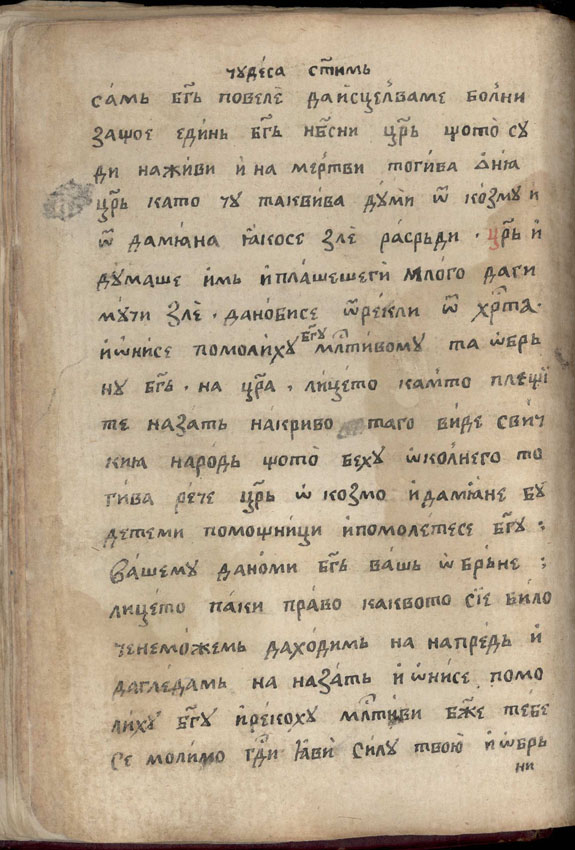 чудеса ст҃имь
самь бг҃ь повеле да исцелꙋваме болни
за щое единь бг҃ь нб҃сни цр҃ь щото су
ди на живи и на мертви тогива ѡнїа
цр҃ь като чу таквива дꙋми ѿ козму и
ѿ дамїана ꙗкосе зле расрьди · цр҃ь и
дꙋмаше имь и плашешеги млого даги
мꙋчи зле · данобисе ѿрекли ѿ хр҃та ·
и ѡнисе помолиху бг҃у млт҃ивому та ѡбрь
ну бг҃ь · на цр҃а · лицето камто плещї
те назать на криво таго виде свич
киꙗ народь щото беху ѡколнего то
гива рече цр҃ь ѡ козмо и дамїане бу
детеми помощници и помолетесе бг҃у :
вашему даноми бг҃ь вашь ѡбрьне :
лицето паки право каквото сїе било
ченеможемь да ходимь на напредь и
да гледамь на назать и ѡнисе помо
лиху бг҃у и рекоху млт҃иви бж҃е тебе
се молимо гд҃и ꙗви силу твою и ѡбрь
ни